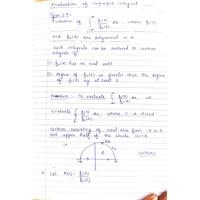 Evaluation of improper integral
Type I :
Evaluation of ∫_{-∞}^{∞} f₁(x)/f₂(x) dx , where f₁(x)
and f₂(x) are polynomial in x.
Such integrals can be reduced to contour
integrals if
(i) f₂(x) has no real root
(ii) degree of f₂(x) is greater than the degree
of f₁(x) by at least 2.
Procedure : To evaluate ∫_{-∞}^{∞} f₁(x)/f₂(x) dx, we
evaluate ∫ f₁(z)/f₂(z) dz, where C is closed
contour consisting of real axis from -R to R
and upper half of the circle |z|=R
-R
0
R
contour
* Let F(z) = f₁(z)/f₂(z)